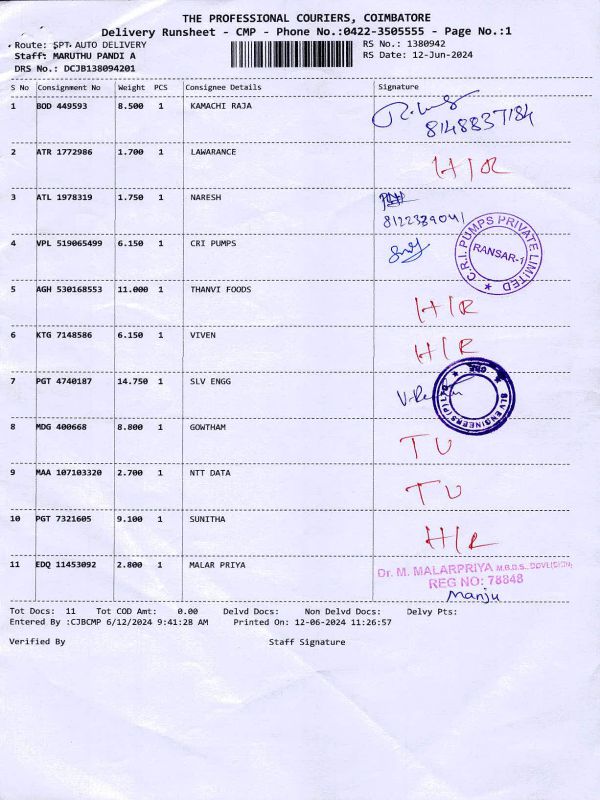 THE PROFESSIONAL COURIERS, COIMBATORE
Delivery Runsheet - CMP - Phone No.:0422-3505555 - Page No.:1
Route: SPT AUTO DELIVERY RS No.: 1380942
Staff: MARUTHU PANDI A RS Date: 12-Jun-2024
DRS No.: DCJB138094201
S No Consignment No Weight PCS Consignee Details Signature
1 BOD 449593 8.500 1 KAMACHI RAJA
8148837184
2 ATR 1772986 1.700 1 LAWARANCE H/R
3 ATL 1978319 1.750 1 NARESH
8122389041
4 VPL 519065499 6.150 1 CRI PUMPS
C.R.I. PUMPS PRIVATE LIMITED
RANSAR-1
5 AGH 530168553 11.000 1 THANVI FOODS H/R
6 KTG 7148586 6.150 1 VIVEN H/R
7 PGT 4740187 14.750 1 SLV ENGG
SLV ENGINEERS (P) LTD
CBE
8 MDG 400668 8.800 1 GOWTHAM TU
9 MAA 107103320 2.700 1 NTT DATA TU
10 PGT 7321605 9.100 1 SUNITHA H/R
11 EDQ 11453092 2.800 1 MALAR PRIYA
Dr. M. MALARPRIYA M.B.D.S.,
REG NO: 78848
Manju
Tot Docs: 11 Tot COD Amt: 0.00 Delvd Docs: Non Delvd Docs: Delvy Pts:
Entered By :CJBCMP 6/12/2024 9:41:28 AM Printed On: 12-06-2024 11:26:57
Verified By Staff Signature